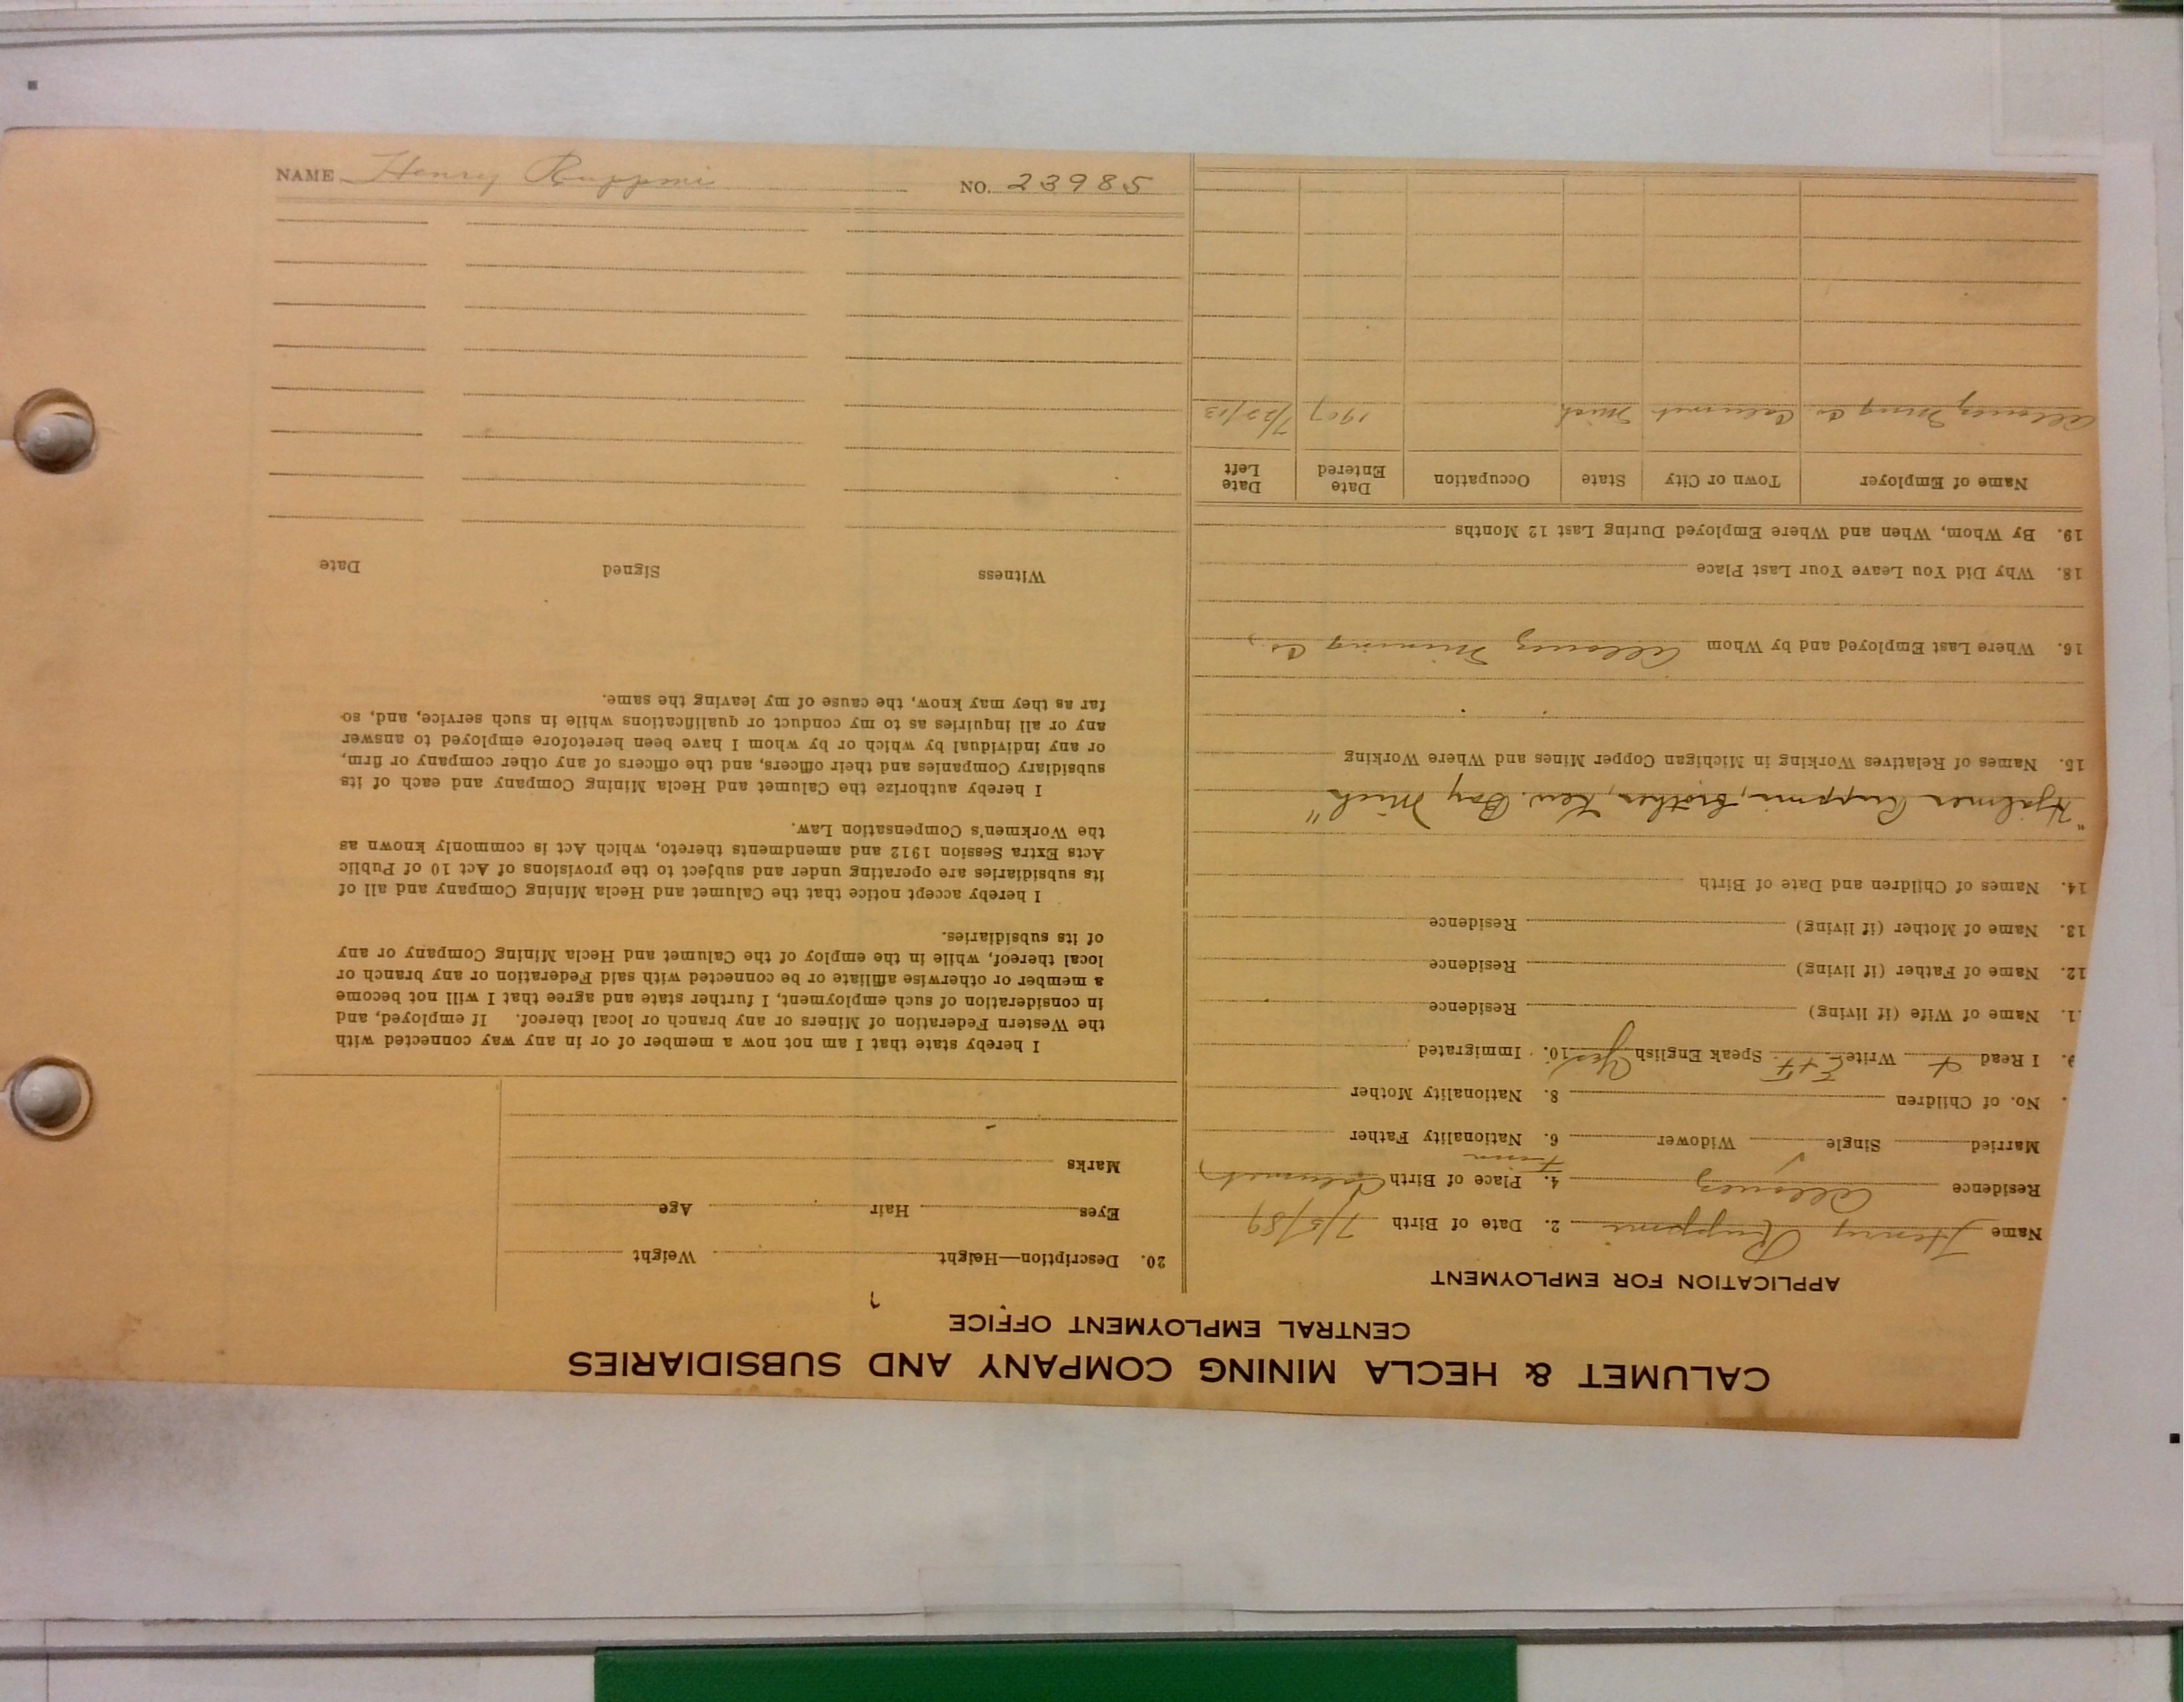 CALUMET & HECLA MINING COMPANY AND SUBSIDIARIES
CENTRAL EMPLOYMENT OFFICE
APPLICATION FOR EMPLOYMENT
Name Henry Ruppni 2. Date of Birth 7/5/89
Residence Allouez 4. Place of Birth Calumet
Married Single ✓ Widower 6. Nationality Father Finn
No. of Children 8. Nationality Mother
9. I Read & Write E & F Speak English Yes 10. Immigrated
11. Name of Wife (if living) Residence
12. Name of Father (if living) Residence
13. Name of Mother (if living) Residence
14. Names of Children and Date of Birth
"Hjalmer Ruppni, brother, Kew. Bay Mich"
15. Names of Relatives Working in Michigan Copper Mines and Where Working
16. Where Last Employed and by Whom Allouez Mining Co.
18. Why Did You Leave Your Last Place
19. By Whom, When and Where Employed During Last 12 Months
Name of Employer Town or City State Occupation Date Entered Date Left
Allouez Mng Co Calumet Mich 1907 7/23/13
20. Description—Height Weight
Eyes Hair Age
Marks
I hereby state that I am not now a member of or in any way connected with
the Western Federation of Miners or any branch or local thereof. If employed, and
in consideration of such employment, I further state and agree that I will not become
a member or otherwise affiliate or be connected with said Federation or any branch or
local thereof, while in the employ of the Calumet and Hecla Mining Company or any
of its subsidiaries.
I hereby accept notice that the Calumet and Hecla Mining Company and all of
its subsidiaries are operating under and subject to the provisions of Act 10 of Public
Acts Extra Session 1912 and amendments thereto, which Act is commonly known as
the Workmen's Compensation Law.
I hereby authorize the Calumet and Hecla Mining Company and each of its
subsidiary Companies and their officers, and the officers of any other company or firm,
or any individual by which or by whom I have been heretofore employed to answer
any or all inquiries as to my conduct or qualifications while in such service, and, so
far as they may know, the cause of my leaving the same.
Witness Signed Date
NAME Henry Ruppni NO. 23985